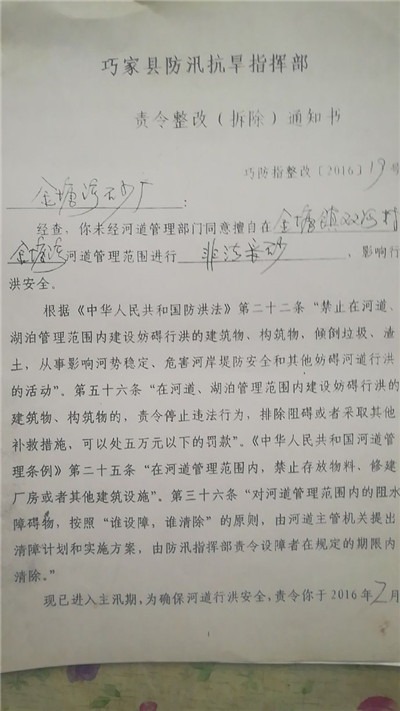 巧家县防汛抗旱指挥部
责令整改（拆除）通知书
巧防指整改〔2016〕19号
金塘湾石砂厂：
经查，你未经河道管理部门同意擅自在金塘镇双河村
金塘湾河道管理范围进行非法采砂，影响行
洪安全。
根据《中华人民共和国防洪法》第二十二条“禁止在河道、
湖泊管理范围内建设妨碍行洪的建筑物、构筑物，倾倒垃圾、渣
土，从事影响河势稳定、危害河岸堤防安全和其他妨碍河道行洪
的活动”。第五十六条“在河道、湖泊管理范围内建设妨碍行洪的
建筑物、构筑物的，责令停止违法行为，排除阻碍或者采取其他
补救措施，可以处五万元以下的罚款”。《中华人民共和国河道管
理条例》第二十五条“在河道管理范围内，禁止存放物料，修建
厂房或者其他建筑设施”。第三十六条“对河道管理范围内的阻水
障碍物，按照“谁设障，谁清除”的原则，由河道主管机关提出
清障计划和实施方案，由防汛指挥部责令设障者在规定的期限内
清除。”
现已进入主汛期，为确保河道行洪安全，责令你于2016年2月
1